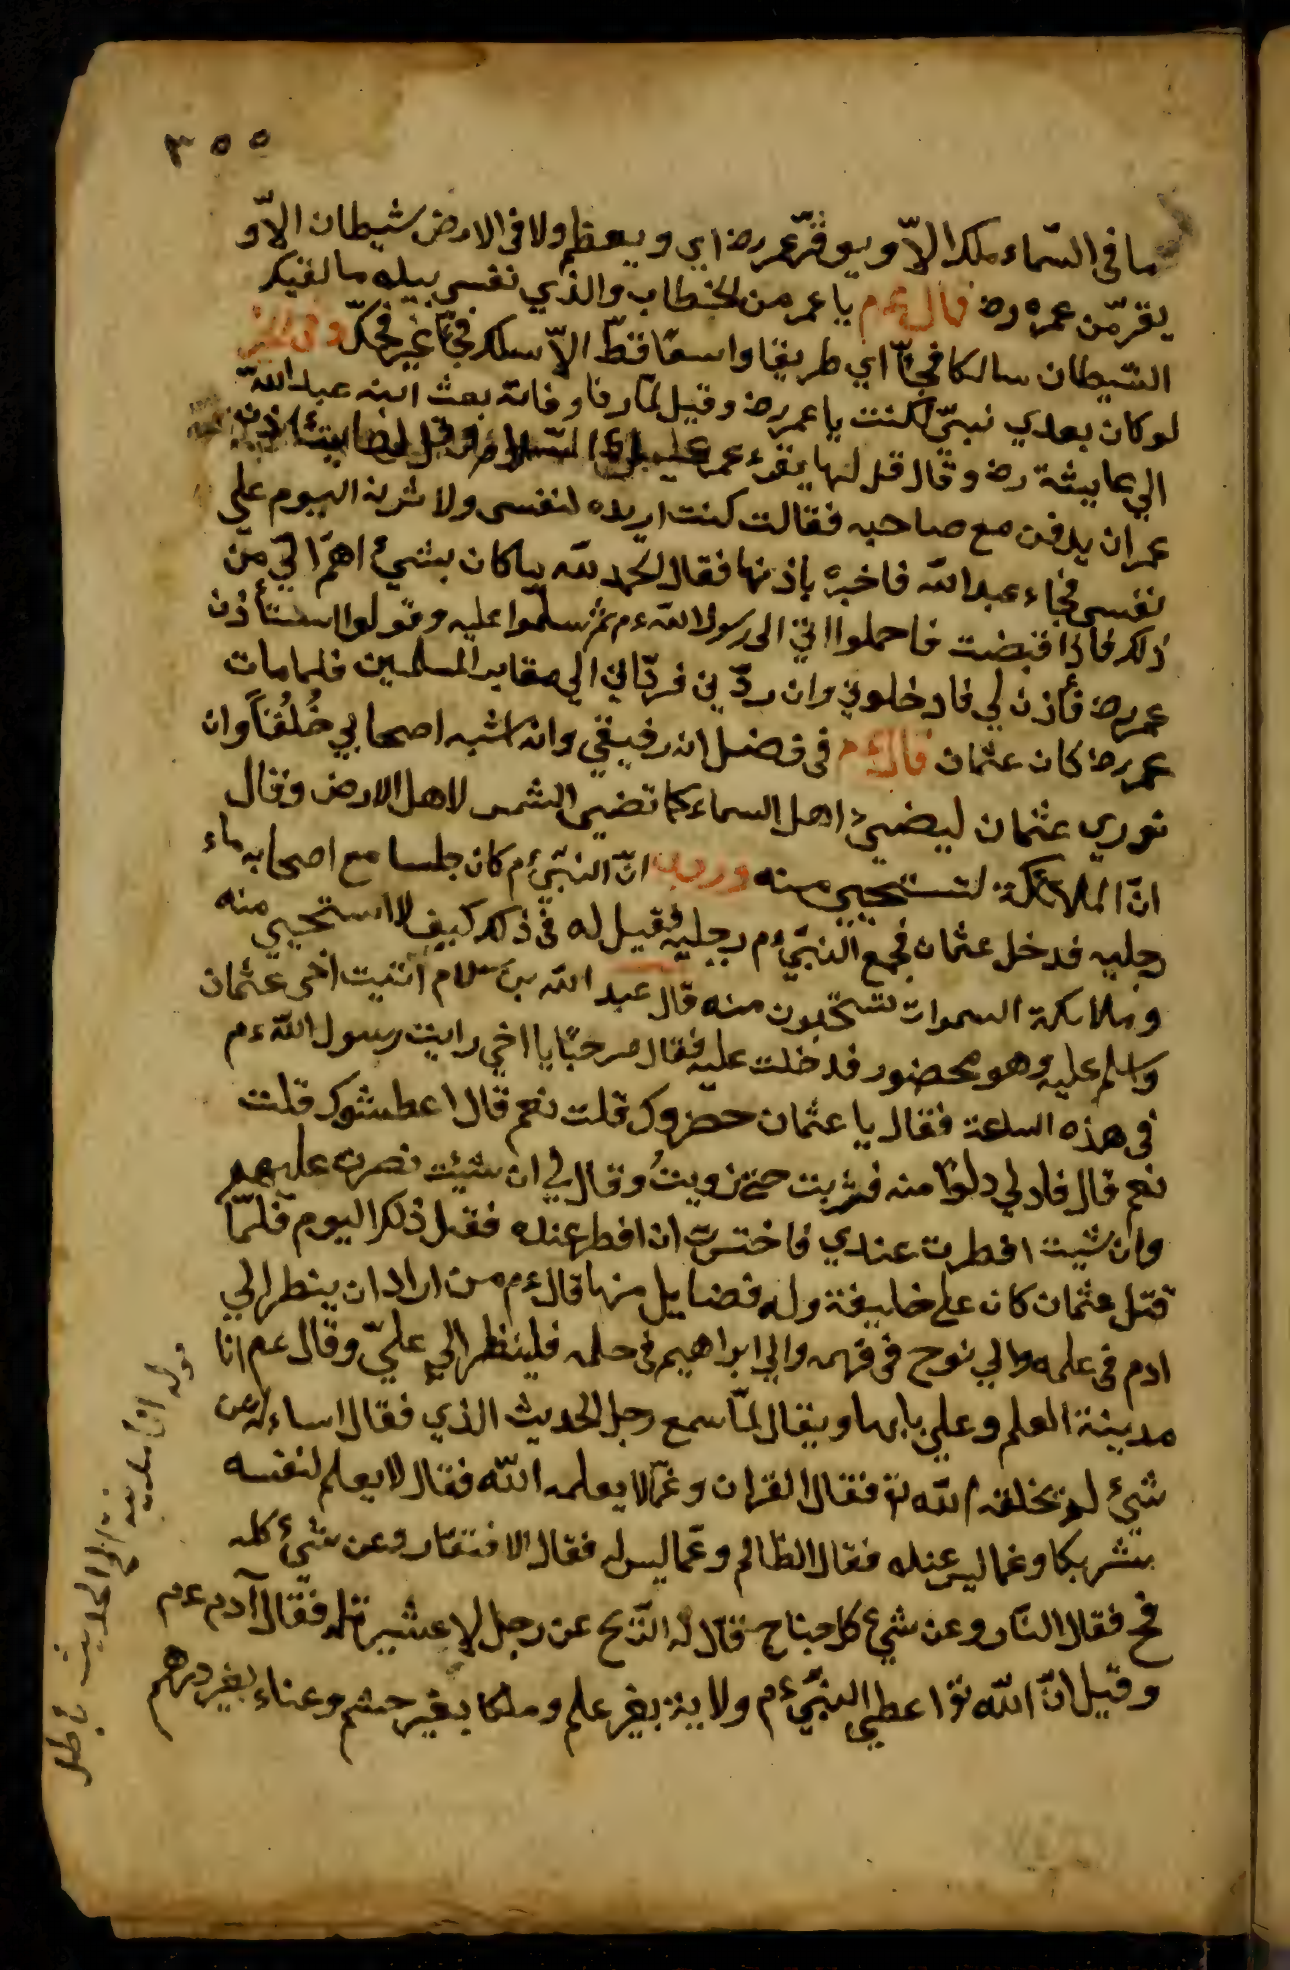 ٣٥٥
ما فى السّماء ملكا الاّ و يوقّر عمر رض اي و يعظم ولا فى الارض شيطان الاّ و
يفرّ من عمره رض قال عم يا عمر من الخطاب والذي نفسي بيله ما لقيك
الشيطان سالكا فجّا اي طريقا واسعًا قطّ الاّ سلك فجّا غير فجّك وفى الخبر
لوكان بعدي نبيّ لكنت يا عمر رض وقيل لمّا وفاته بعث ابنه عبد الله
الي عايشة رض وقال قل لها يقرء عمر عليك السلام و قل يستأذن
عمر ان يدفن مع صاحبه فقالت كنت اريده لنفسى ولاثرنه اليوم علي
نفسى فجاء عبد الله فاخبره باذنها فقال الحمد لله ما كان بشيء اهمّ الىّ من
ذلك فاذا قبضت فاحملوا انى الى رسول الله ءم ثم سلموا عليه و قولوا استأذن
عمر رض فأذن لي فادخلوني وان ردّني فردّاني الي مقابر المسلمين فلما مات
عمر رض كان عثمان قال ءم فى فضل انه رفيقي وانه اشبه اصحابي خُلُقنًا وان
نوري عثمان ليضيئ اهل السماء كما تضيى الشمس لاهل الارض وقال
انّ الملائكة لتستحيي منه وروي انّ النبّي ءم كان جلسا مع اصحابه ماء
رجليه فدخل عثمان فجمع النبّي ءم رجليه فقيل له فى ذلك كيف لا استحيي منه
وملائكة السموات تستحيون منه قال عبد الله بن سلام اتيت اخى عثمان
واسلم عليه وهو محضور فدخلت عليه فقال مرحبًا يا اخي رايت رسول الله ءم
فى هذه الساعة فقال يا عثمان حصروك قلت نعم قال اعطشوك قلت
نعم قال فادلي دلوًا منه فشربت حتى رويتُ وقال لي ان شيئت نصرت عليهم
وان شيت افطرت عندي فاختر ان افطر عنده فقتل ذلك اليوم فلمّا
قتل عثمان كان علي خليفة وله فضايل منها قال ءم من اراد ان ينظر الي
ادم فى علمه والي نوح فى فهمه والي ابراهيم فى حلمه فلينظر الي عليّ وقال عم انا
مدينة العلم وعلي بابها ويقال لمّا سمع رجل الحديث الذي فقال اساءله عن
شيئ لم يخلقه الله تع فقال القران وعمّا لا يعلمه الله فقال لا يعلم لنفسه
شريكا وعما ليس عنده فقال الظالم وعمّا ليس له فقال الافتقار وعن شيئ كله
فم فقال النّار وعن شيئ كله جناح فقال له الرّيح عن رجل لا عشيرة له فقال آدم ءم
وقيل انّ الله تع اعطي النبّي ءم ولاية بغير علم وملكا بغير حشم وعناء بغير درهم
قوله انا مدينة الخ الحديث باطل